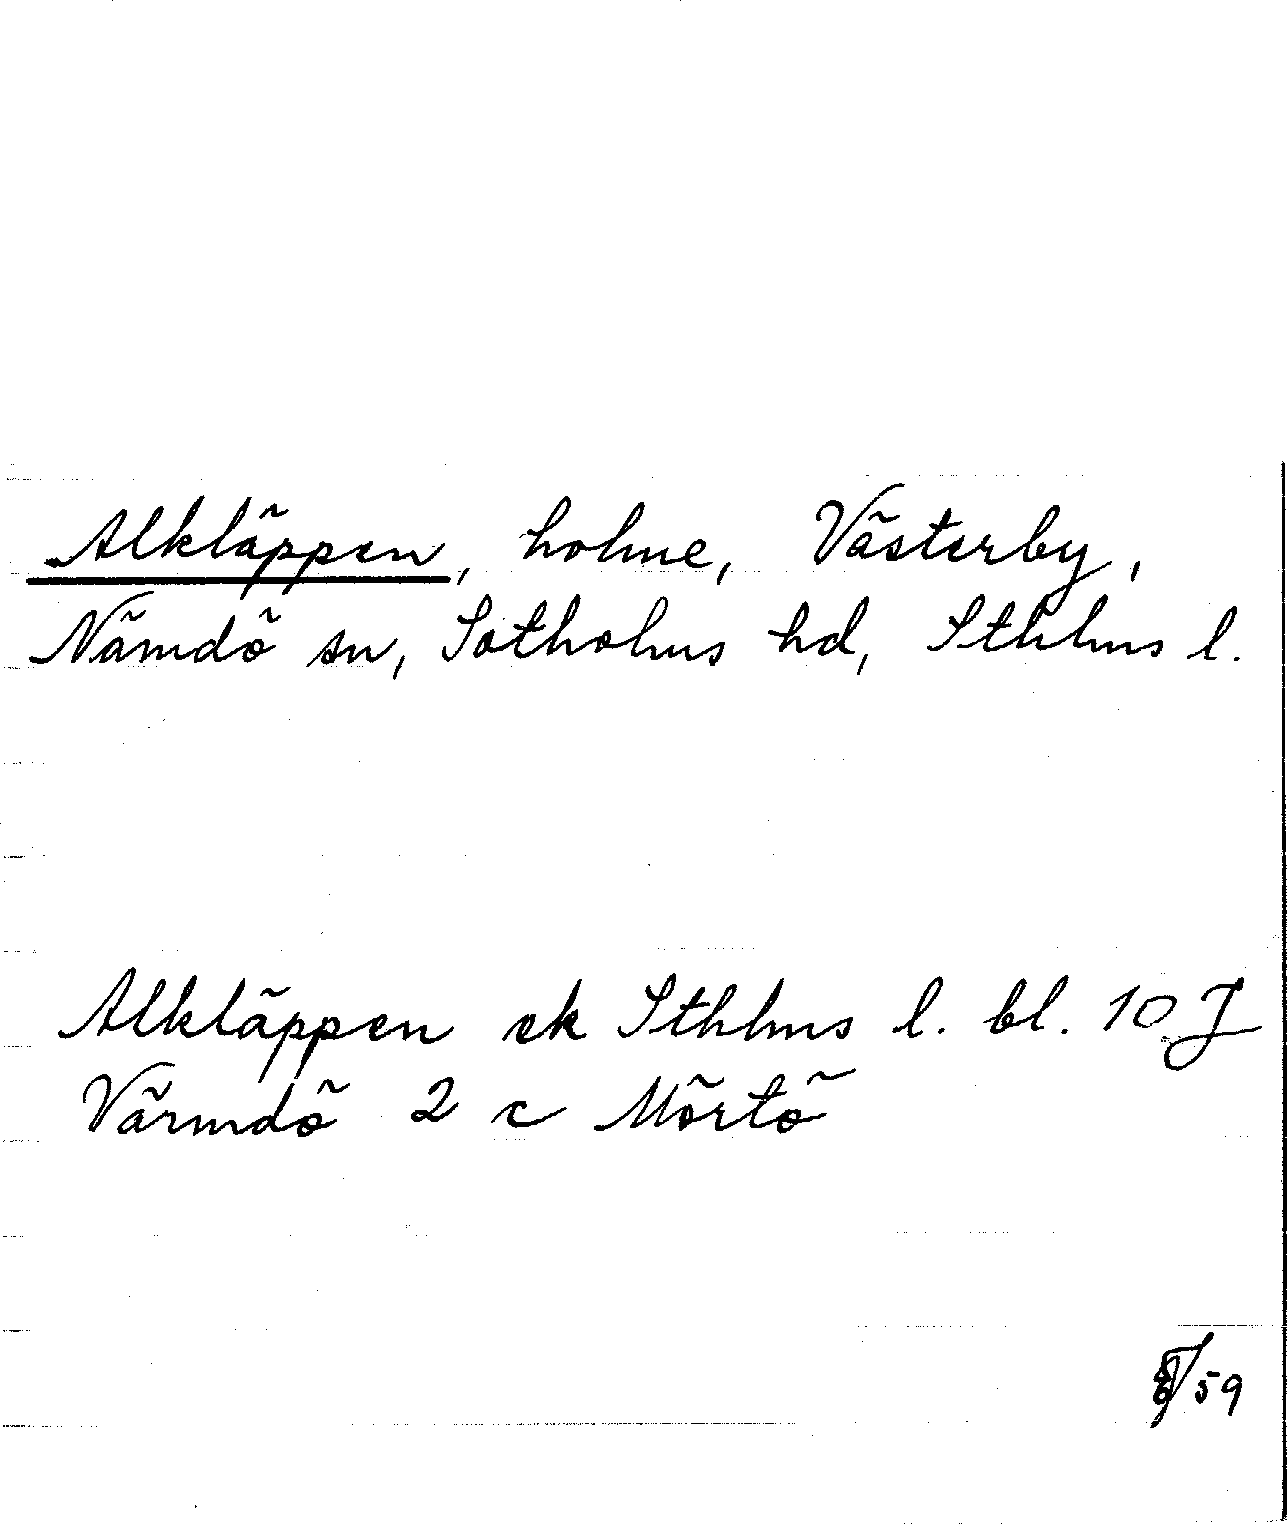 Alkläppen, holme, Västerby,
Nämdö sn, Sotholms hd, Sthlms l.
Alkläppen ek Sthlms l. bl. 10 J
Värmdö 2 c Mörtö
59